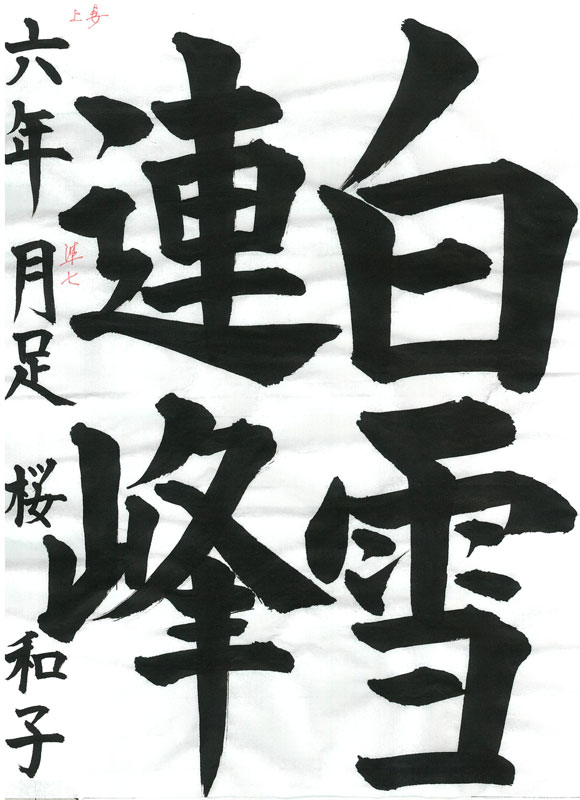 白雪
連峰
六年 月足 桜和子
準七